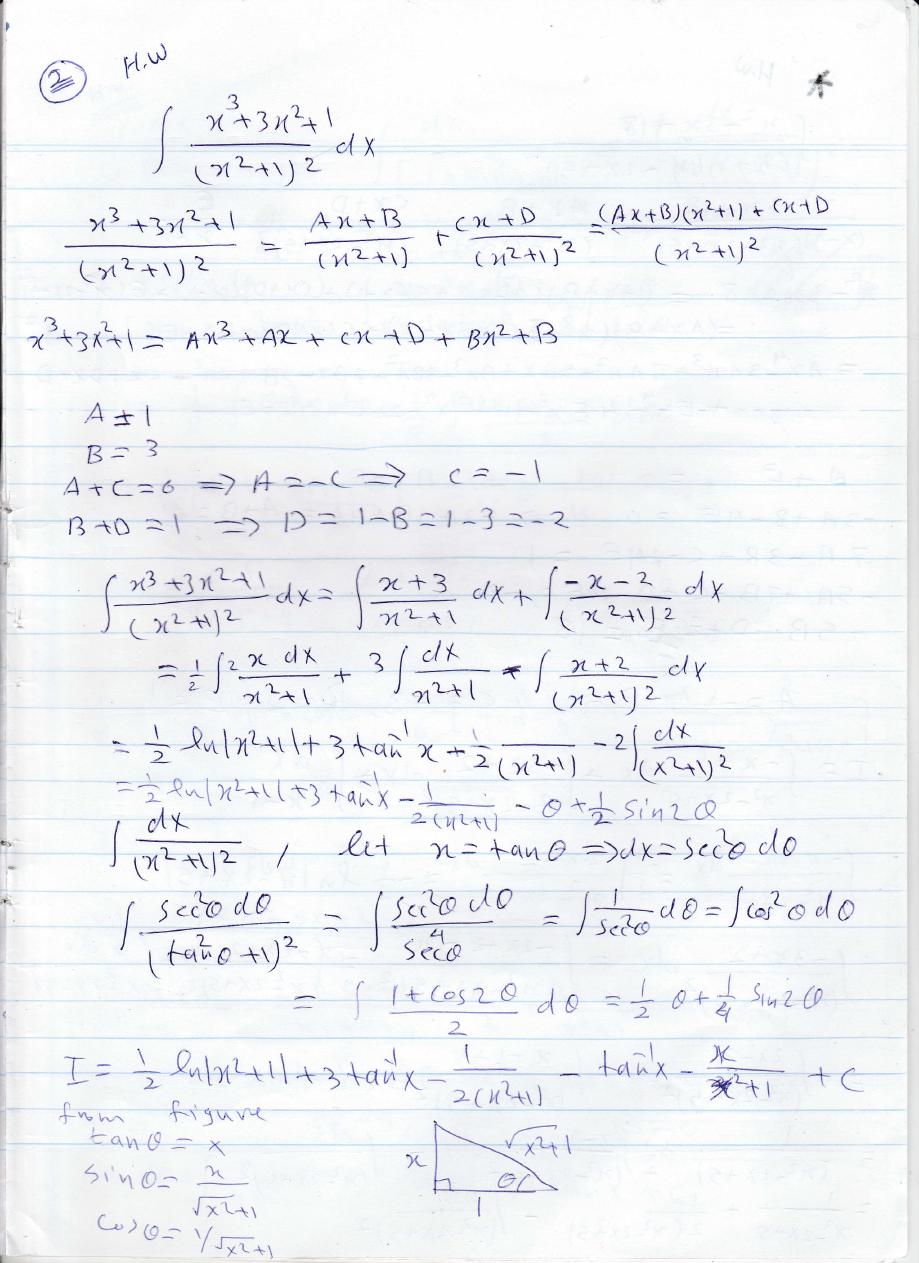 ② H.W *
∫ (x³+3x²+1)/(x²+1)² dx
(x³+3x²+1)/(x²+1)² = (Ax+B)/(x²+1) + (Cx+D)/(x²+1)² = ((Ax+B)(x²+1)+Cx+D)/(x²+1)²
x³+3x²+1 = Ax³+Ax+Cx+D+Bx²+B
A = 1
B = 3
A+C=0 ⇒ A=-C ⇒ C=-1
B+D=1 ⇒ D=1-B=1-3=-2
∫ (x³+3x²+1)/(x²+1)² dx = ∫ (x+3)/(x²+1) dx + ∫ (-x-2)/(x²+1)² dx
= ½ ∫ 2 x dx/(x²+1) + 3 ∫ dx/(x²+1) - ∫ (x+2)/(x²+1)² dx
= ½ ln|x²+1| + 3 tan⁻¹x + ½ 1/(x²+1) - 2 ∫ dx/(x²+1)²
= ½ ln|x²+1| + 3 tan⁻¹x - 1/(2(x²+1)) - θ + ½ sin2θ
∫ dx/(x²+1)² , let x = tanθ ⇒ dx = sec²θ dθ
∫ sec²θ dθ/(tan²θ+1)² = ∫ sec²θ dθ/sec⁴θ = ∫ 1/sec²θ dθ = ∫ cos²θ dθ
= ∫ (1+cos2θ)/2 dθ = ½ θ + ¼ sin2θ
I = ½ ln|x²+1| + 3 tan⁻¹x - 1/(2(x²+1)) - tan⁻¹x - x/(x²+1) + C
from figure
tanθ = x
sinθ = x/√(x²+1)
cosθ = 1/√(x²+1)
x √(x²+1)
θ
1